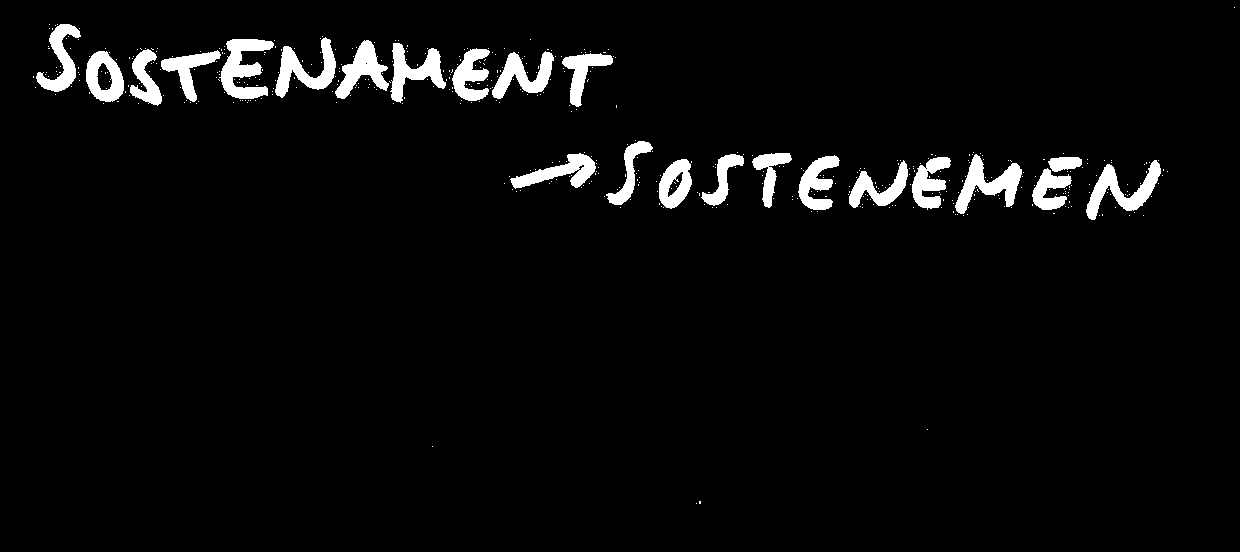 SOSTENAMENT
→ SOSTENEMEN